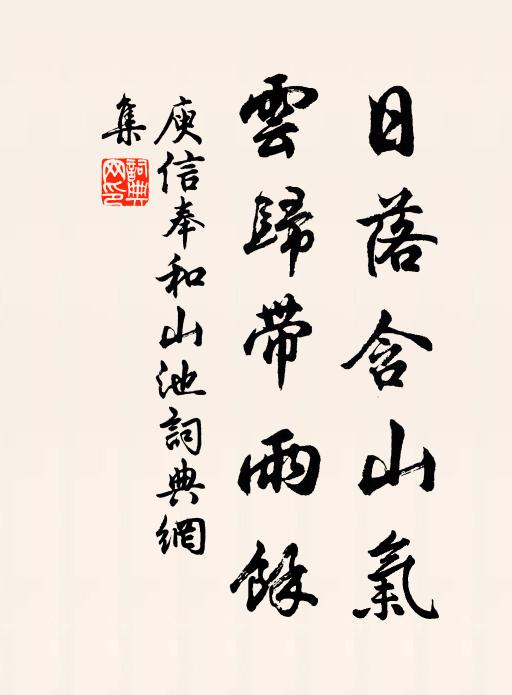 日落含山氣
雲歸帶雨餘
庾信奉和山池詞典網
集
詞典網印